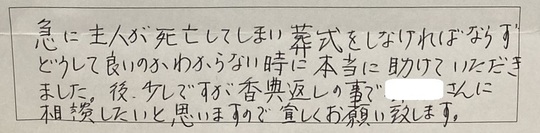 急に主人が死亡してしまい葬式をしなければならず
どうして良いのかわからない時に本当に助けていただき
ました。後、少しですが香典返しの事で さんに
相談したいと思いますので宜しくお願い致します。